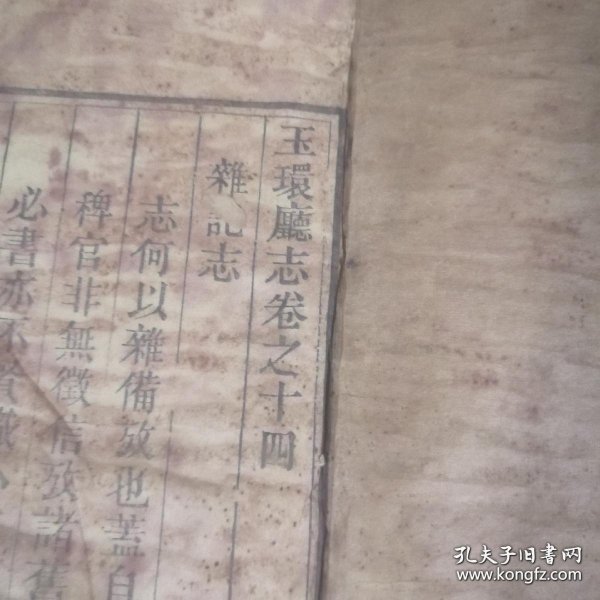 玉環廳志卷之十四
雜記志
志何以雜備攷也蓋自
稗官非無徵信攷諸舊
必書亦不
孔夫子旧书网
www.kongfz.com